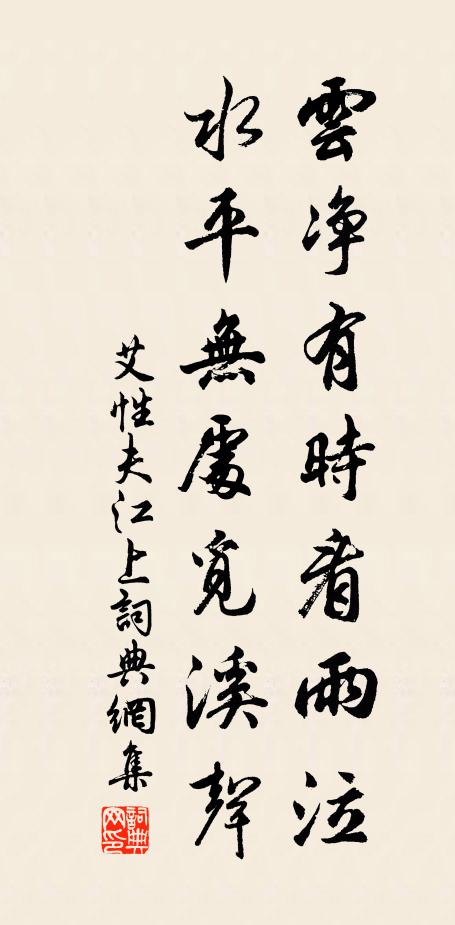 雲净有時看雨泣
水平無處覓溪聲
艾性夫江上詞典網集
詞典网印